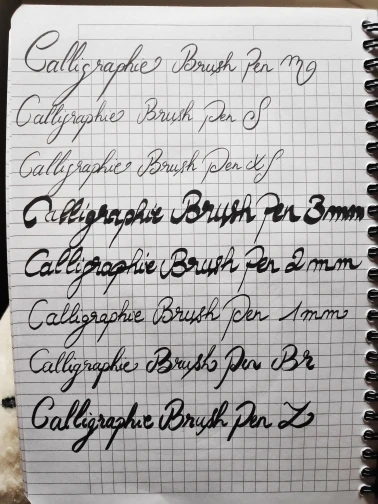 Calligraphie Brush Pen M
Calligraphie Brush Pen S
Calligraphie Brush Pen XS
Calligraphie Brush Pen 3mm
Calligraphie Brush Pen 2mm
Calligraphie Brush Pen 1mm
Calligraphie Brush Pen Br
Calligraphie Brush Pen Z